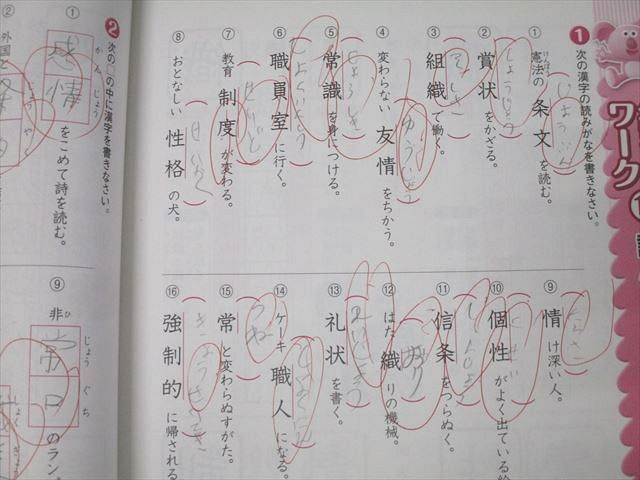 ワーク
1 次の漢字の読みがなを書きなさい。
① 憲法の条文を読む。
じょうぶん
② 賞状をかざる。
しょうじょう
③ 組織で働く。
そしき
④ 変わらない友情をちかう。
ゆうじょう
⑤ 常識を身につける。
じょうしき
⑥ 職員室に行く。
しょくいんしつ
⑦ 教育制度が変わる。
せいど
⑧ おとなしい性格の犬。
せいかく
⑨ 情け深い人。
なさけ
⑩ 個性がよく出ている
こせい
⑪ 信条をつらぬく。
しんじょう
⑫ はた織りの機械。
⑬ 礼状を書く。
れいじょう
⑭ ケーキ職人になる。
しょくにん
⑮ 常と変わらぬすがた。
つね
⑯ 強制的に帰される
きょうせいてき
2 次の□の中に漢字を書きなさい。
① 感情をこめて詩を読む。
かんじょう
② 外国と
⑨ 非常口のラン
ひ じょう ぐち